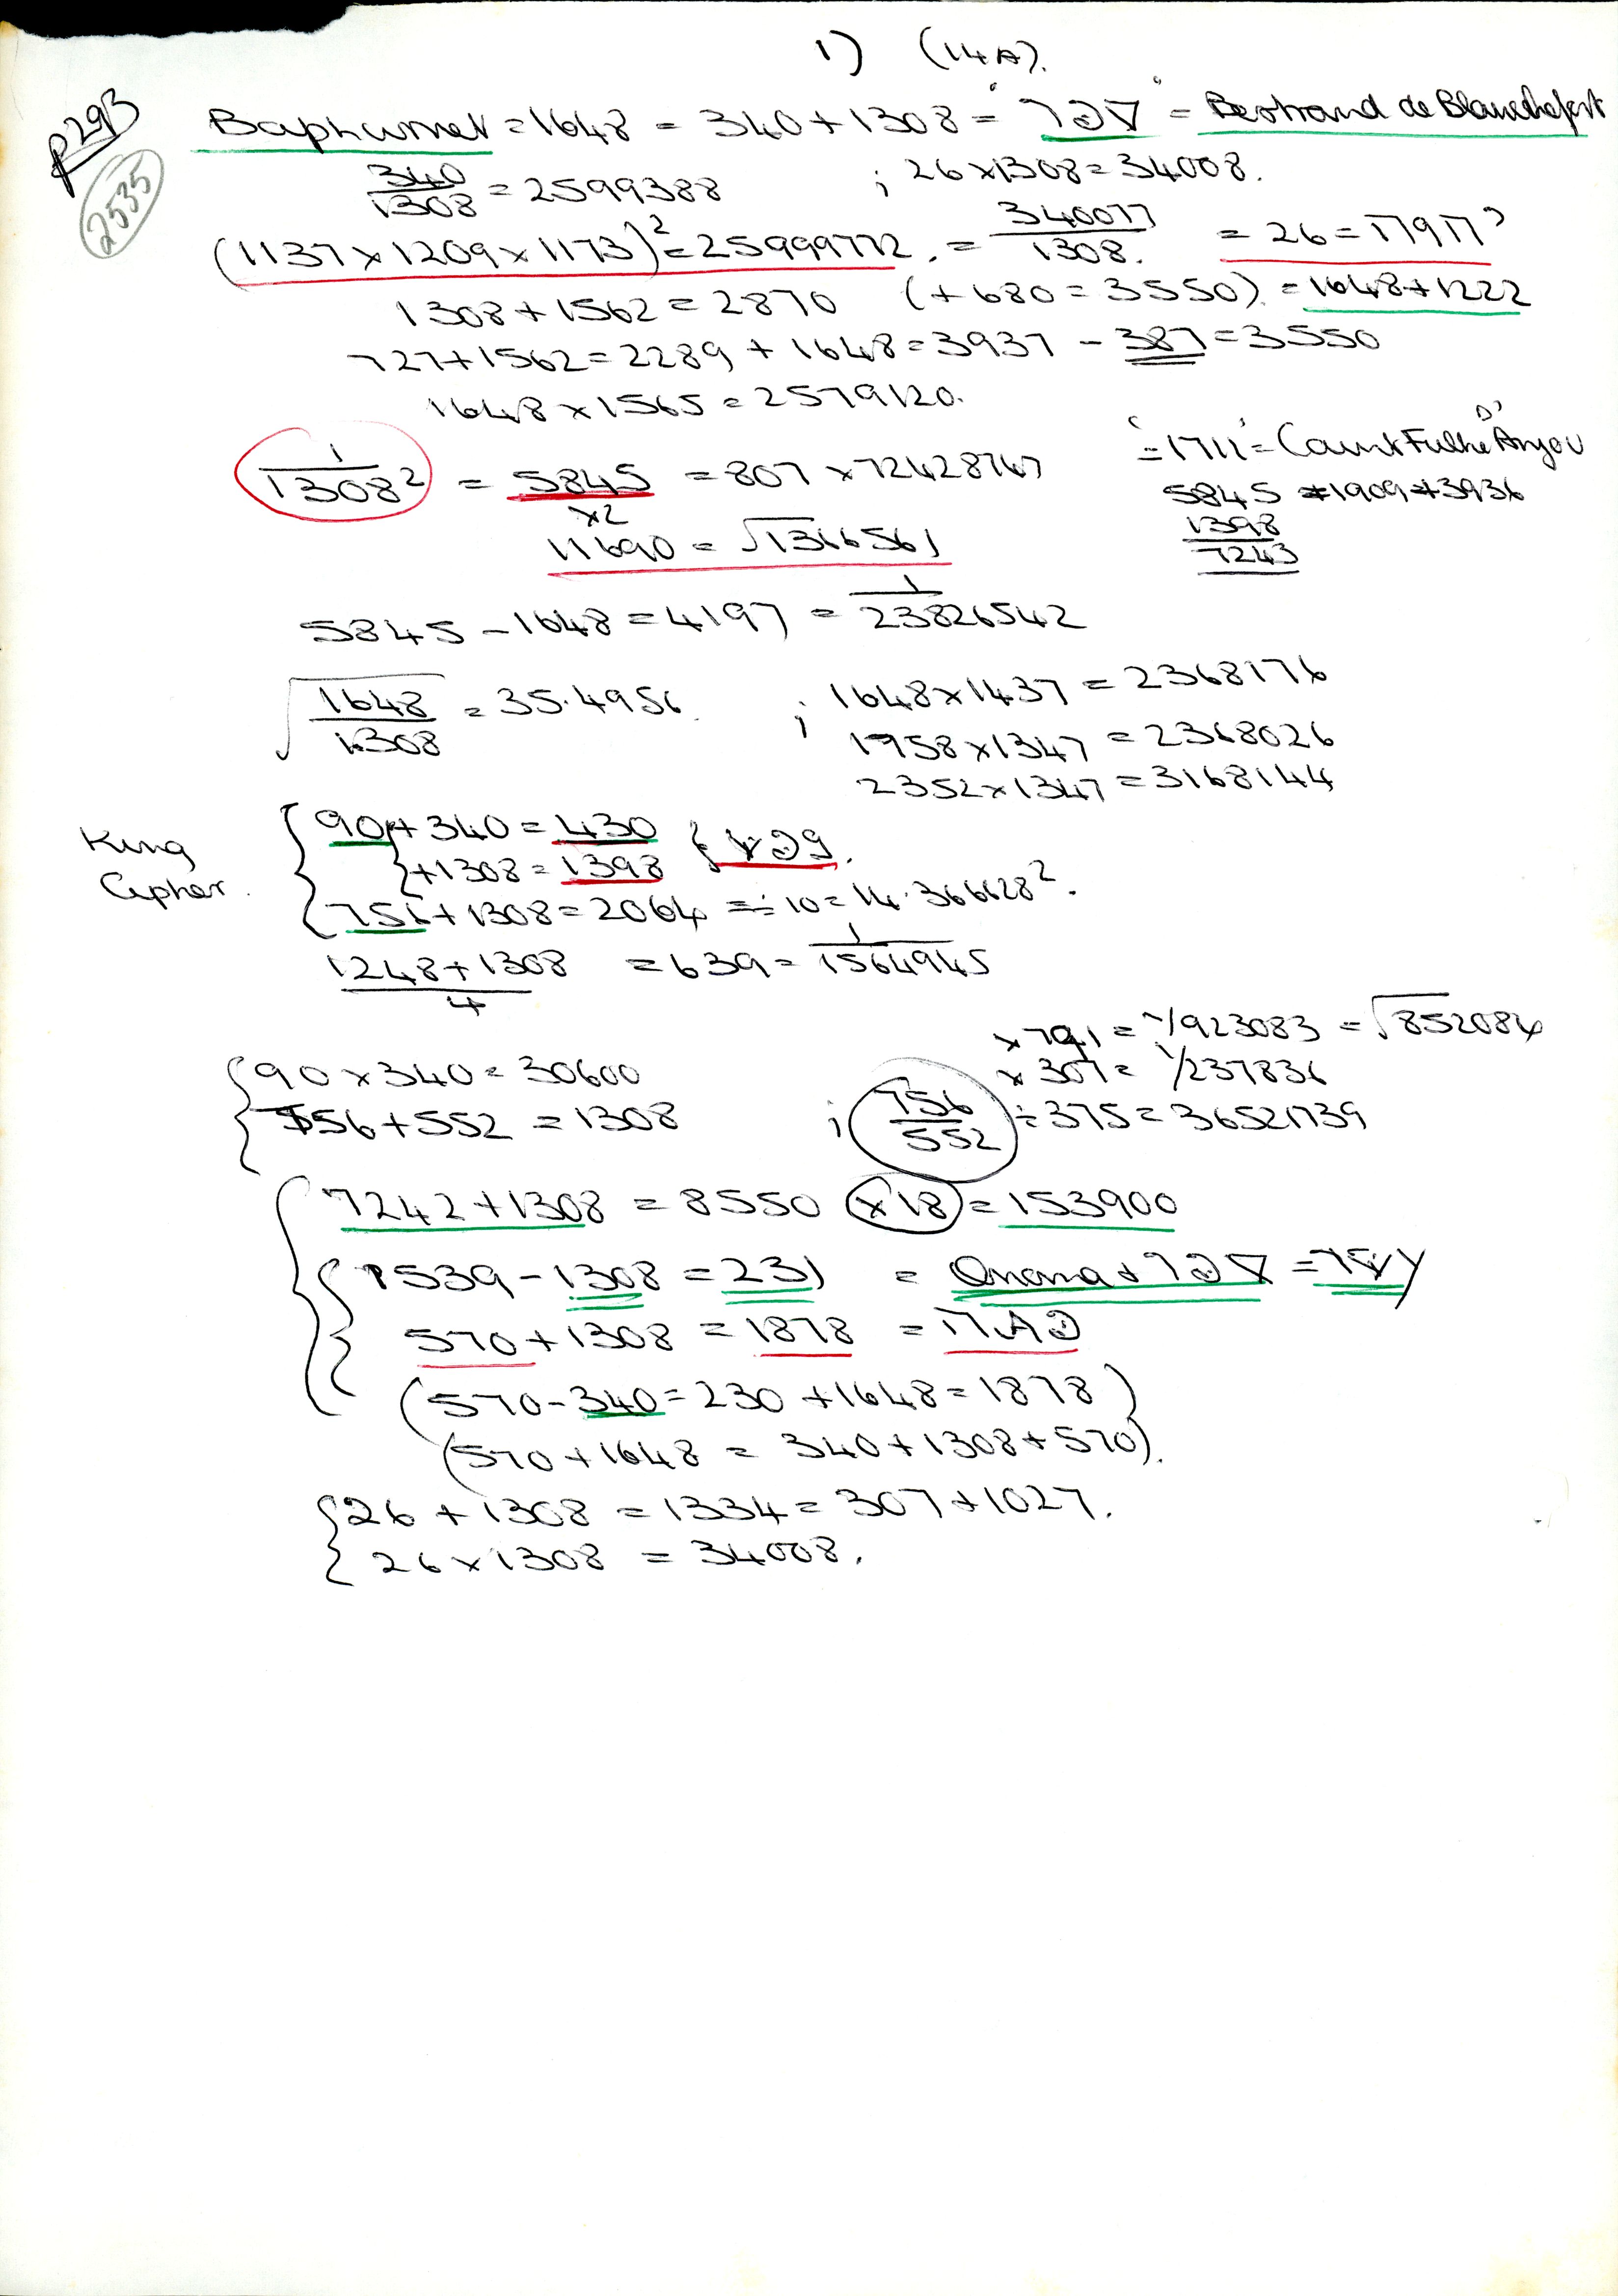 1) (14A).
p293
2535
Baphomet = 1648 = 340 + 1308 = "7∂∇" = Bertrand de Blanchefort
340/1308 = 2599388 ; 26 × 1308 = 34008.
(1137 × 1209 × 1173)² = 25999772. = 340077/1308. = 26 = 17917?
1308 + 1562 = 2870 (+ 680 = 3550). = 1648 + 1222
727 + 1562 = 2289 + 1648 = 3937 - 387 = 3550
1648 × 1565 = 2579120.
'= 1711' = Count Fulke D'Anjou
1/1308² = 5845 = 807 × 72428767
×2
5845 + 1909 + 3936
1398
7243
11690 = √1366561
5845 - 1648 = 4197 = 1/23826542
√1648/1308 = 35.4956. ; 1648 × 1437 = 2368176
1958 × 1347 = 2368026
2352 × 1347 = 3168144
King Cipher.
90 + 340 = 430
+ 1308 = 1398
756 + 1308 = 2064 = ÷ 10 = 14.366628².
1248 + 1308 / 4 = 639 = 1/1564945
× 791 = 1/923083 = √852084
90 × 340 = 30600 × 307 = 1/237836
756 + 552 = 1308 ; 756/552 ÷ 375 = 36521739
7242 + 1308 = 8550 × 18 = 153900
1539 - 1308 = 231
570 + 1308 = 1878
(570 - 340 = 230 + 1648 = 1878)
(570 + 1648 = 340 + 1308 + 570).
26 + 1308 = 1334 = 307 + 1027.
26 × 1308 = 34008.